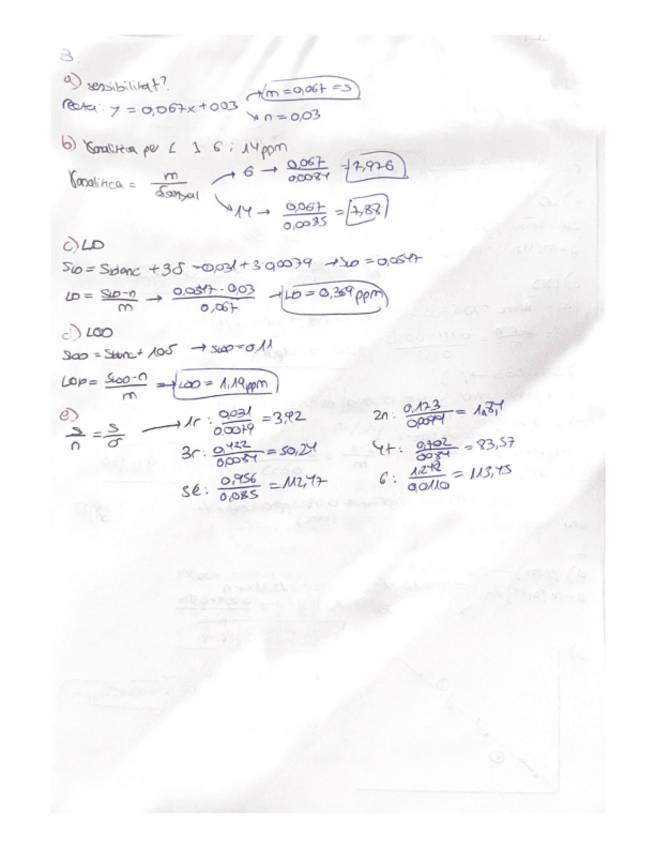 3.
a) sessibilitat?
Recta: y = 0,067x + 003 → m = 0,067 = S
→ n = 0,03
b) γanalítica per [ ] 6 i 14 ppm
γanalítica = m / Ssenyal → 6 → 0,067 / 0,0084 = 7,976
→ 14 → 0,067 / 0,0085 = 7,88
c) LD
SLD = Sblanc + 3S → 0,031 + 3·0,0079 → SLD = 0,0547
LD = SLD-n / m → 0,0547 - 0,03 / 0,067 → LD = 0,369 ppm
d) LOQ
SLOQ = Sblanc + 10S → SLOQ = 0,11
LOQ = SLOQ-n / m → LOQ = 1,19 ppm
e)
S/n = S/σ → 1r: 0,031 / 0,0079 = 3,92 2n: 0,173 / 0,0094 =
3r: 0,422 / 0,0084 = 50,24 4t: 0,702 / 0084 = 83,57
5è: 0,956 / 0,085 = 112,47 6: 1,248 / 0,0110 = 113,45